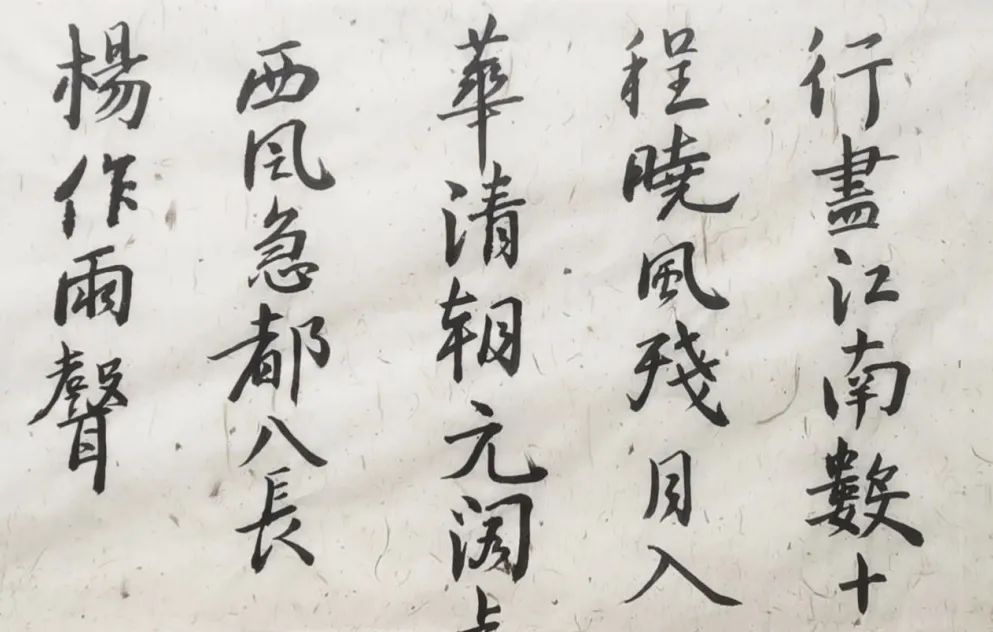 行盡江南數十
程曉風殘月入
華清朝元閣上
西風急都入長
楊作雨聲